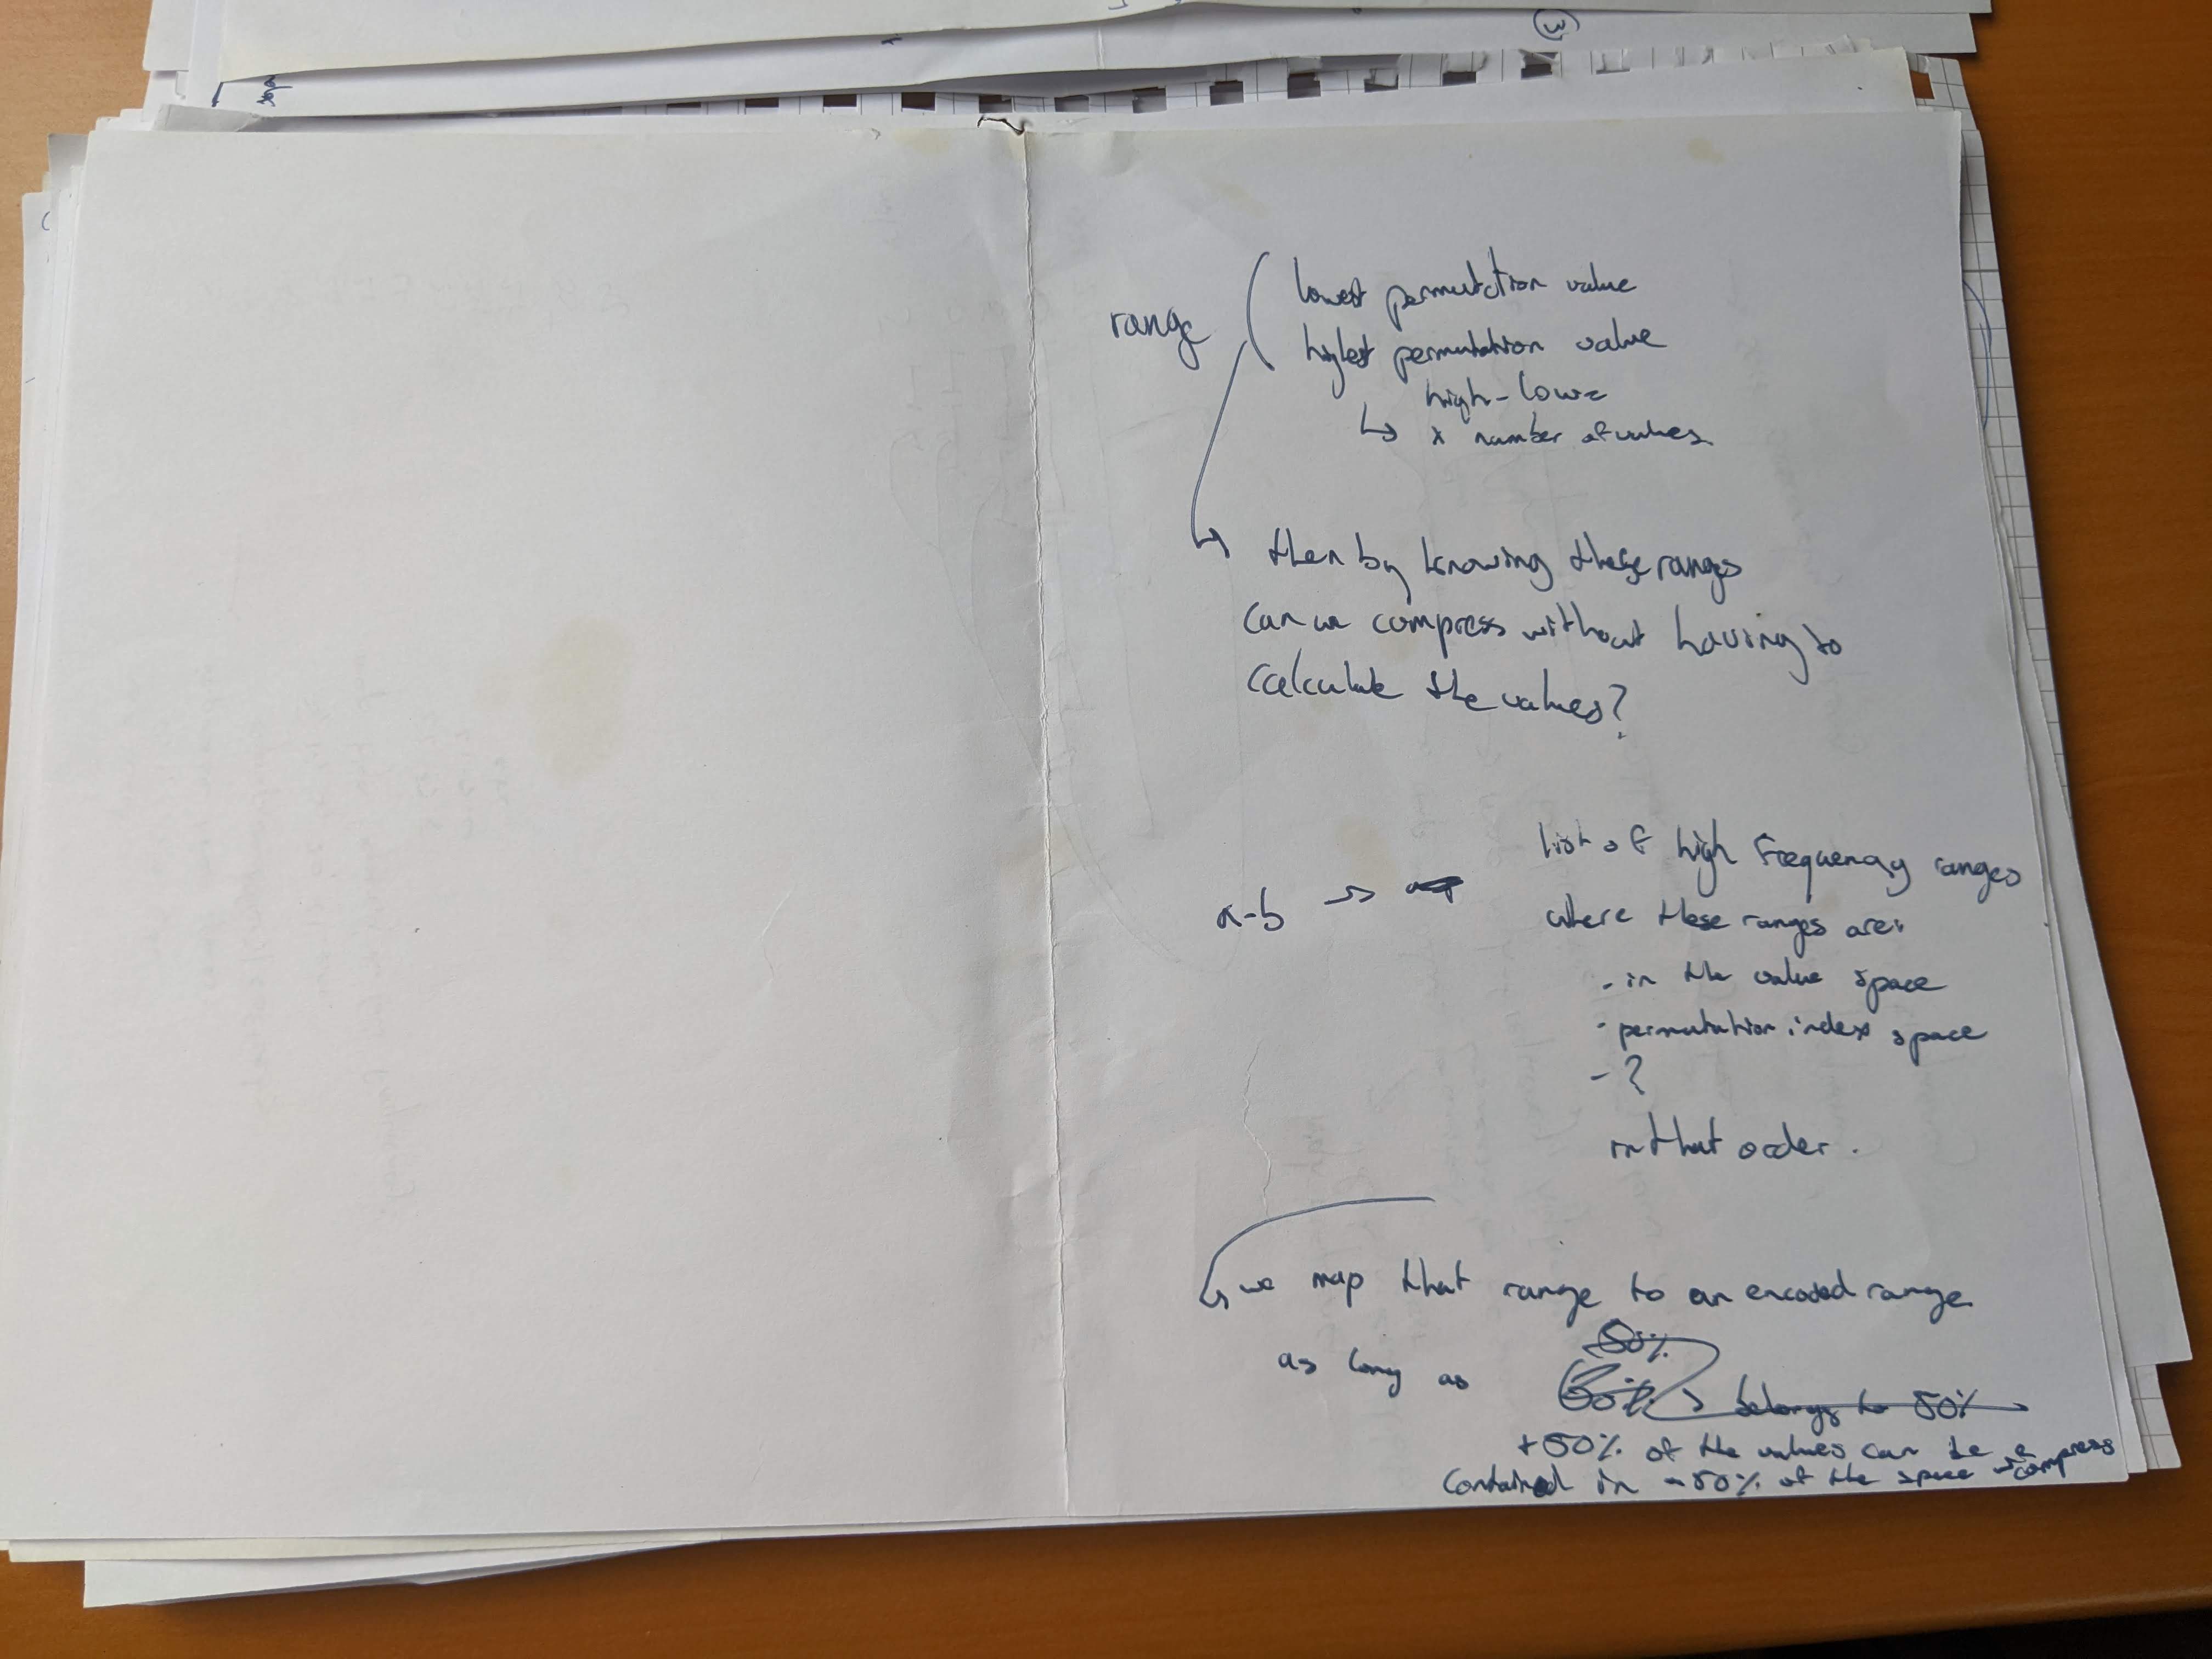 ③
range
lowest permutation value
highest permutation value
high - low =
↳ x number of values
↳ then by knowing these ranges
can we compress without having to
calculate the values?
a-b →
list of high frequency ranges
where these ranges are:
- in the value space
- permutation index space
- ?
in that order.
↳ we map that range to an encoded range
as long as
50%
belongs to 50%
+50% of the values can be
contained in -50% of the space → compress